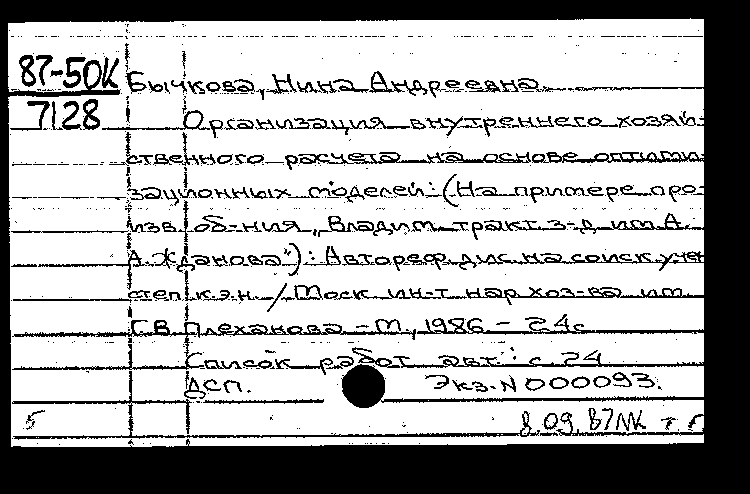 87-50К
7128
Бычкова, Нина Андреевна.
Организация внутреннего хозяй-
ственного расчета на основе оптими-
зационных моделей: (На примере про-
изв. об-ния „Владим. тракт. з-д им. А.
А. Жданова"): Автореф. дис. на соиск. учен.
степ. к.э.н. / Моск. ин-т нар. хоз-ва им.
Г.В. Плеханова – М., 1986 – 24с
Список работ авт.: с. 24
ДСП. Экз. N 000093.
5 8.09.87